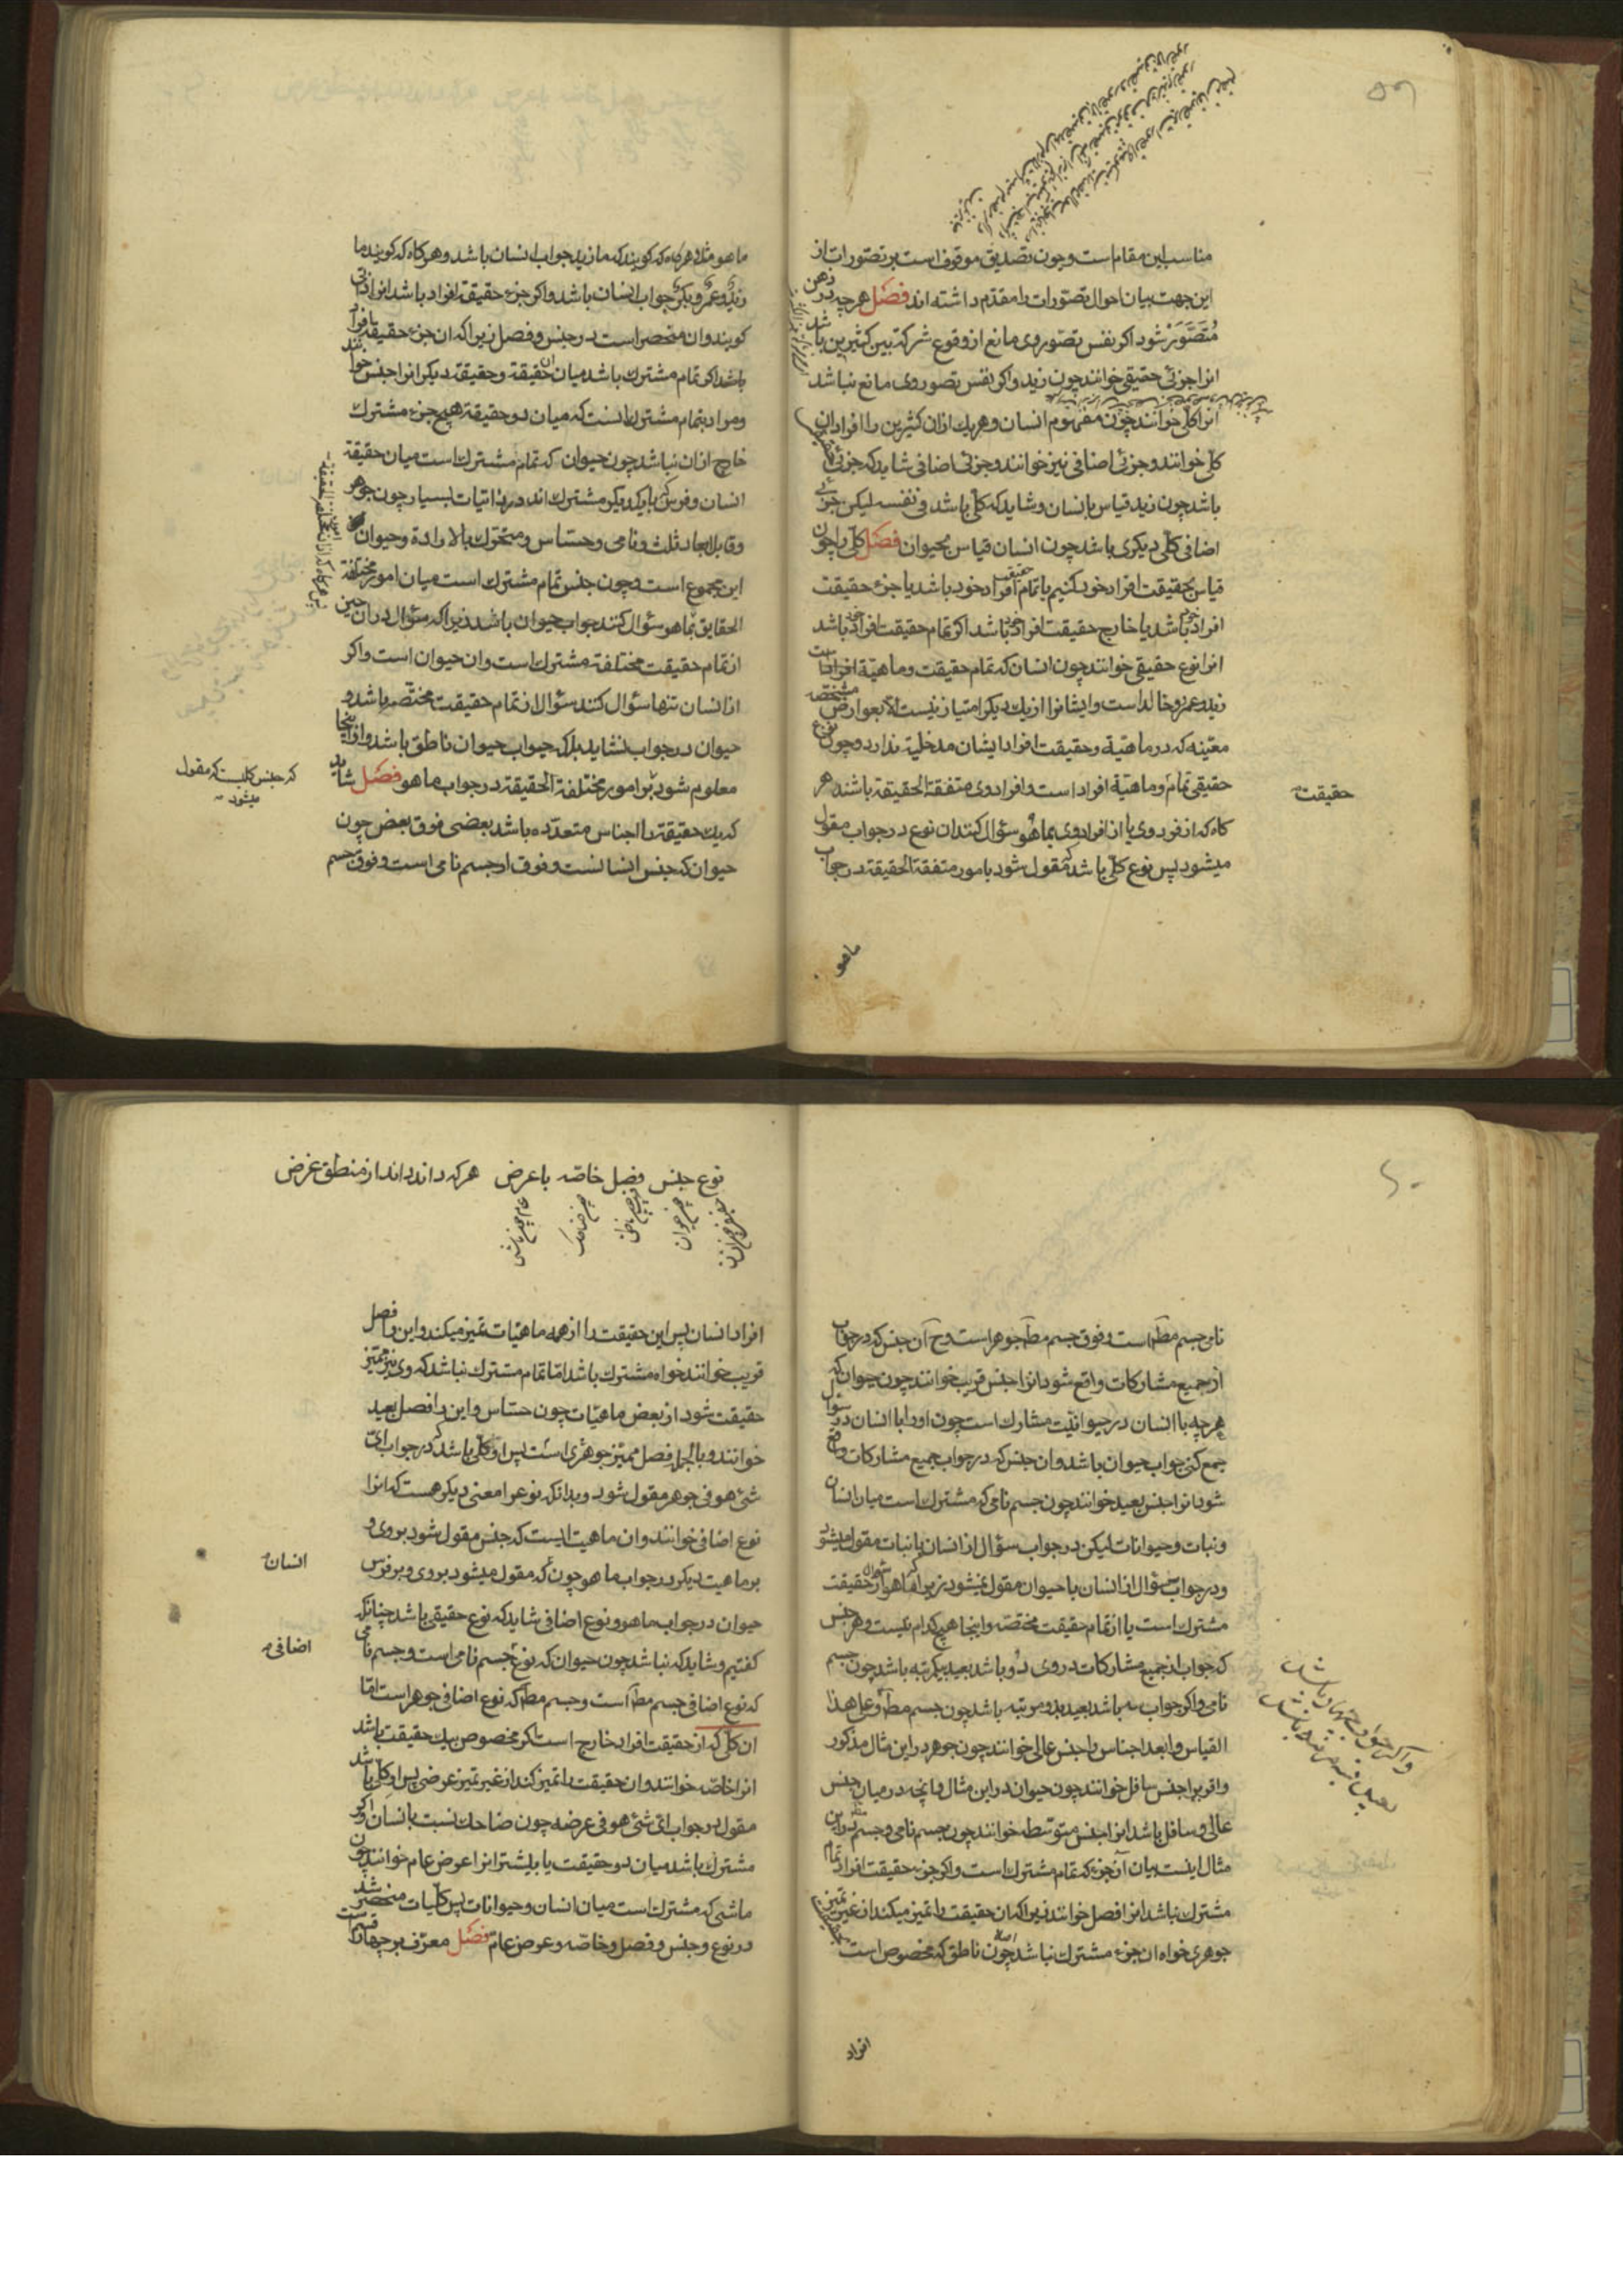 مناسب این مقام است و چون تصدیق موقوف است بر تصورات از
این جهت بیان احوال تصورات را مقدم داشته اند فصل هر چه در ذهن
مُتَصَوَّر شود اکر نفس تصور وی مانع از وقوع شرکة بین کثیرین باشد
انرا جزئی حقیقی خوانند چون زید و اکر نفس تصور وی مانع نباشد
انرا کلی خوانند چون مفهوم انسان و هریك ازان کثیرین را افراد ان
کلی خوانند و جزئی اضافی نیز خوانند و جزئی اضافی شاید که جزئی
باشد چون زید قیاس بانسان و شاید که کلی باشد فی نفسه لیکن جزئی
اضافی کلی دیکری باشد چون انسان قیاس بحیوان فصل کلی را چون
قیاس بحقیقت افراد خود کنیم یا تمام حقیقت افراد خود باشد یا جزء حقیقت
افراد خود باشد یا خارج حقیقت افراد خود باشد اکر تمام حقیقت افراد خود باشد
انرا نوع حقیقی خوانند چون انسان که تمام حقیقت و ماهیة افراد
زید و عمرو و خالد است و ایشانرا از یك دیکر امتیاز نیست الا بعوارض مشخصه
معینه که در ماهیة و حقیقت افراد ایشان مدخلیة ندارد و چون نوع
حقیقی تمام و ماهیة افراد است و افراد وی متفقة الحقیقة باشند هر
حقیقت
کاه که از فرد وی یا از افراد وی بما هو سؤال کنند ان نوع در جواب مقول
میشود پس نوع کلی باشد که مقول شود بامور متفقة الحقیقة در جواب
ماهو
ما هو مثلا هرکاه که کویند که ما زید جواب انسان باشد و هرکاه که کویند ما
زید و عمرو و بکر جواب انسان باشد و اکر جزء حقیقة افراد باشد انرا ذاتی
کویند و ان منحصر است در جنس و فصل زیرا که ان جزء حقیقة افراد
باشد اکر تمام مشترك باشد میان ان حقیقة و حقیقة دیکر انرا جنس خوانند
و مراد بتمام مشترك انست که میان دو حقیقة هیچ جزء مشترك
خارج ازان نباشد چون حیوان که تمام مشترك است میان حقیقة
انسان و فرس که با یکدیکر مشترك اند در ذاتیات بسیار چون جوهر
و قابل ابعاد ثلث و نامی و حساس و متحرك بالارادة و حیوان
این مجموع است و چون جنس تمام مشترك است میان امور مختلفة
الحقایق بما هو سؤال کنند جواب حیوان باشد زیرا که سؤال دران حین
از تمام حقیقت مختلفة مشترك است و ان حیوان است و اکر
از انسان تنها سؤال کنند سؤال از تمام حقیقت مختصه باشد و
حیوان در جواب نشاید بلکه جواب حیوان ناطق باشد و از اینجا
معلوم شود بر امور مختلفة الحقیقة در جواب ما هو فصل شاید
که جنس کلیست که مقول
میشود
که یك حقیقة را اجناس متعدده باشد بعضی فوق بعض چون
حیوان که جنس انسانست و فوق او جسم نامی است و فوق جسم
نامی جسم مط است و فوق جسم مط جوهر است و ح آن جنس که در جواب
از جمیع مشارکات واقع شود انرا جنس قریب خوانند چون حیوان که
هر چه با انسان در حیوانیت مشارك است چون او را با انسان در سؤال
جمع کنی جواب حیوان باشد و ان جنس که در جواب جمیع مشارکات واقع
شود انرا جنس بعید خوانند چون جسم نامی که مشترك است میان انسان
و نبات و حیوانات لیکن در جواب سؤال از انسان با نبات مقول میشود
و در جواب سؤال از انسان با حیوان مقول نمیشود زیرا که ما هو سؤال از حقیقت
مشترك است یا از تمام حقیقت مختصه و اینجا هیچ کدام نیست و هر جنس
که جواب از جمیع مشارکات در وی دو باشد بعید بیکمرتبه باشد چون جسم
نامی و اکر جواب سه باشد بعید بدو مرتبه باشد چون جسم مط و علی هذا
القیاس و ابعد اجناس را جنس عالی خوانند چون جوهر در این مثال مذکور
و اقرب را جنس سافل خوانند چون حیوان در این مثال و انچه در میان جنس
عالی و سافل باشد انرا جنس متوسطه خوانند چون جسم نامی و جسم مط در این
مثال اینست بیان آن جزء که تمام مشترك است و اکر جزء حقیقت افراد تمام
مشترك نباشد انرا فصل خوانند زیرا که ان حقیقت را تمیز میکند از غیر تمیز
جوهری خواه ان جزء مشترك نباشد اصلا چون ناطق که مخصوص است
افراد
نوع جنس فصل خاصه با عرض هر که داند داند از منطق غرض
افراد انسان پس این حقیقت را از همه ماهیات تمیز میکند و این را فصل
قریب خوانند خواه مشترك باشد اما تمام مشترك نباشد که وی نیز ممیز
حقیقت شود از بعض ماهیات چون حساس و این را فصل بعید
خوانند و بالجمله فصل ممیز جوهری است پس او کلی باشد که در جواب ای
شئ هو فی جوهره مقول شود و بدانکه نوع را معنی دیکر هست که انرا
نوع اضافی خوانند و ان ماهیت ایست که جنس مقول شود بر وی و
بر ماهیت دیکر در جواب ما هو چون که مقول میشود بر وی و بر فرس
انسان
حیوان در جواب ما هو و نوع اضافی شاید که نوع حقیقی باشد چنانکه
کفتیم و شاید که نباشد چون حیوان که نوع جسم نامی است و جسم نامی
اضافی
که نوع اضافی جسم مط است و جسم مط که نوع اضافی جوهر است اما
ان کلی که از حقیقت افراد خارج است اکر مخصوص بیك حقیقت باشد
انرا خاصه خوانند و ان حقیقت را تمیز کند از غیر تمیز عرضی پس او کلی باشد
مقول در جواب ای شئ هو فی عرضه چون ضاحك نسبت بانسان و اکر
مشترك باشد میان دو حقیقت یا بیشتر انرا عرض عام خوانند چون
ماشی که مشترك است میان انسان و حیوانات پس کلیات منحصر شد
در نوع و جنس و فصل و خاصه و عرض عام فصل معرف بر چهار قسم است